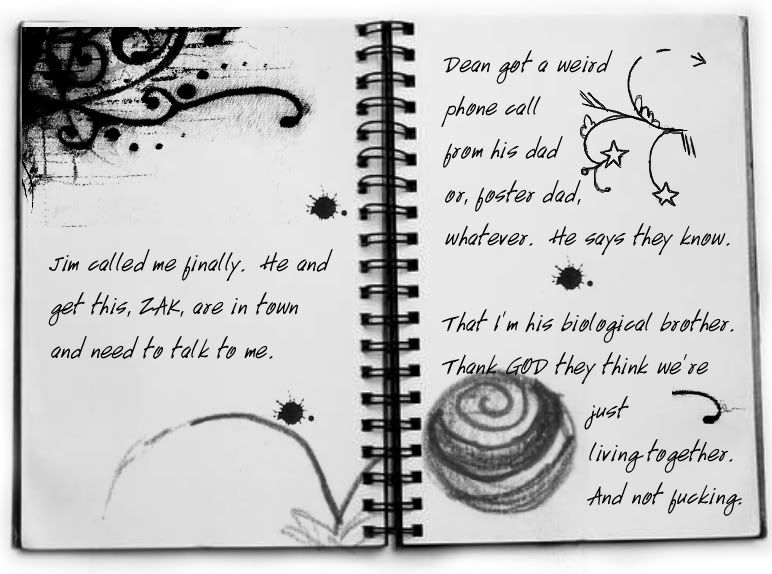 Jim called me finally. He and
get this, ZAK, are in town
and need to talk to me.
Dean got a weird
phone call
from his dad
or, foster dad,
whatever. He says they know.
That I'm his biological brother.
Thank GOD they think we're
just
living together.
And not fucking.